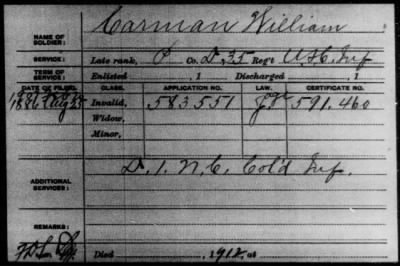 NAME OF SOLDIER: Carman William
SERVICE: Late rank, P Co. D, 35 Reg't U.S.C. Inf
TERM OF SERVICE: Enlisted , 1 Discharged , 1
DATE OF FILING. CLASS. APPLICATION NO. LAW. CERTIFICATE NO.
1886 Aug 25 Invalid, 583551 591.460
Widow,
Minor,
ADDITIONAL SERVICES: D. 1. N.C. Col'd Inf.
REMARKS:
Died , 1912, at